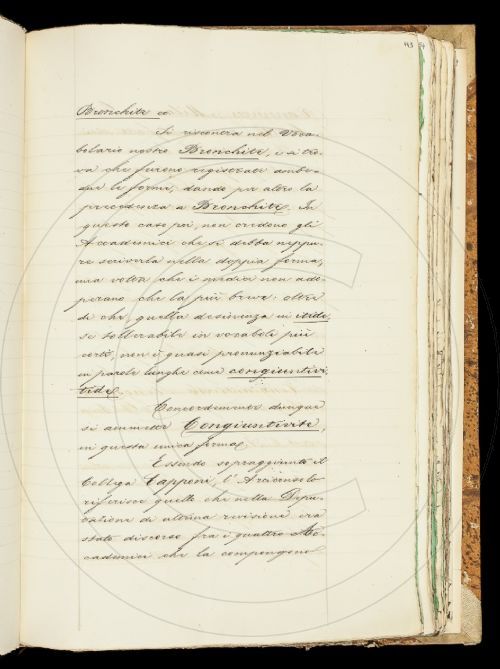 Bronchite ec
Si riscontra nel Voca-
bolario nostro Bronchite, e si tro-
va che furono registrate ambe-
due le forme, dando per altro la
precedenza a Bronchite. In
questo caso poi, non credono gli
Accademici che si debba neppu-
re scriverla nella doppia forma,
una volta che i medici non ado-
perano che la più breve: oltre
di che, quella desinenza in itide,
se tollerabile in vocaboli più
corti, non è quasi pronunziabile
in parole lunghe come congiuntivi-
tide.
Concordemente dunque
si ammette Congiuntivite,
in questa unica forma.
Essendo sopraggiunto il
Collega Capponi, l'Arciconsolo
riferisce quello che nella Depu-
tazione di ultima revisione era
stato discorso fra i quattro Ac-
cademici che la compongono